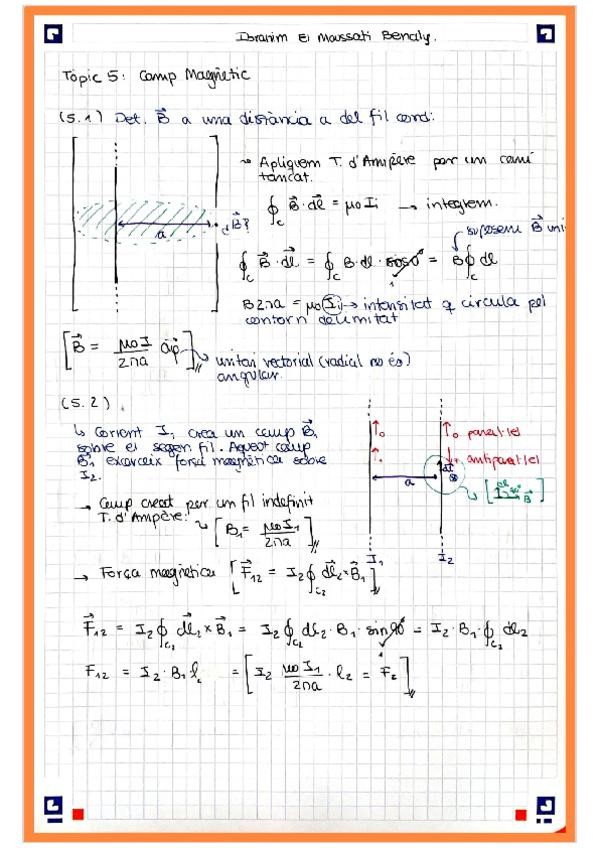 Ibrahim El Moussati Benaly.
Topic 5: Camp Magnètic
(5.1) Det. B⃗ a una distància a del fil cond:
a
¿B⃗?
↝ Apliquem T. d'Ampère per un camí
tancat.
∮c B⃗·dl⃗ = μ0 Ii → integrem.
suposem B⃗ uni
∮c B⃗·dl⃗ = ∮c B·dl·cos0° = B∮dl
1
B2πa = μ0 Ii → intensitat q circula pel
contorn delimitat
[B⃗ = μ0 I / 2πa âφ] unitari vectorial (radial no és)
angular.
(5.2)
↳ Corrent I1 crea un camp B⃗1
sobre el segon fil. Aquest camp
B⃗1 exerceix força magnètica sobre
I2.
→ Camp creat per un fil indefinit
T. d'Ampère: ↝ [B1 = μ0 I1 / 2πa]
→ Força magnètica [F⃗12 = I2 ∮c2 dl⃗2 × B⃗1]
paral·lel
antiparal·lel
a
I1
I2
F⃗12 = I2 ∮c2 dl⃗2 × B⃗1 = I2 ∮c2 dl2 · B1 · sin90° = I2 · B1 · ∮c2 dl2
1
F12 = I2 · B1 · l2 = [I2 μ0 I1 / 2πa · l2 = F2]